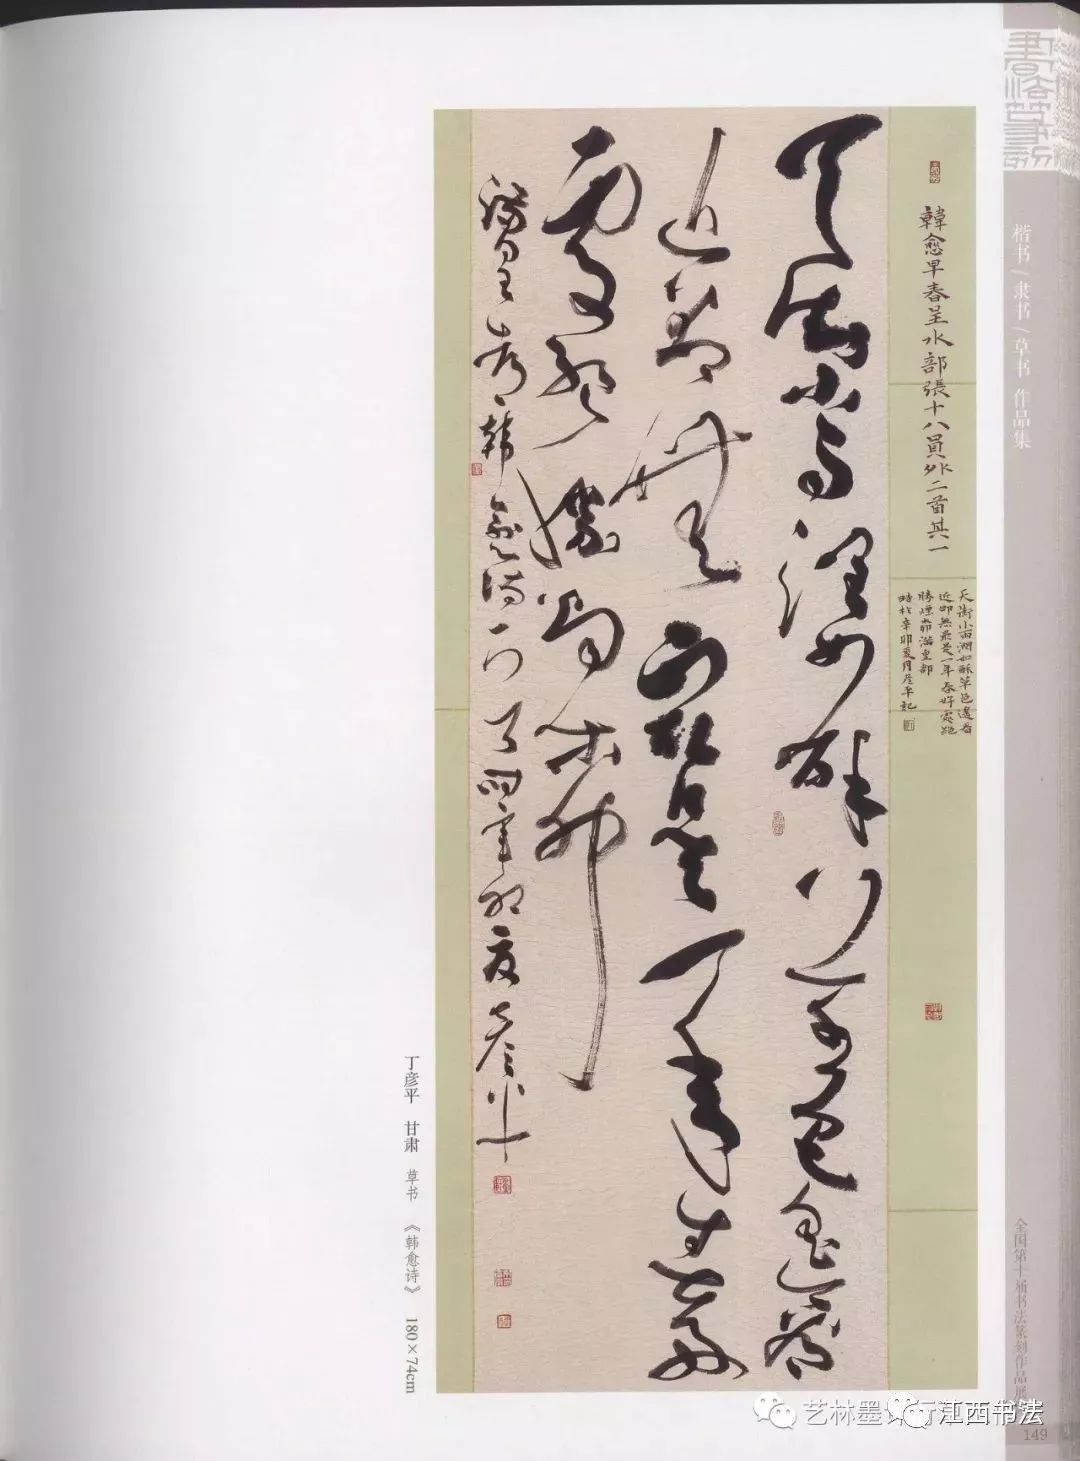 楷书/隶书/草书 作品集
全国第十届书法篆刻作品展
149
韓愈早春呈水部張十八員外二首其一
天街小雨潤如酥草色遙看
近却無最是一年春好處絕
勝煙柳滿皇都
時於辛卯夏月彦平記
天街小雨潤如酥草色遙看
近却無最是一年春好
處絕勝煙柳
滿皇都韓愈詩 卯年初夏彦平
丁彦平 甘肃 草书 《韩愈诗》 180×74cm
江西书法
艺林墨